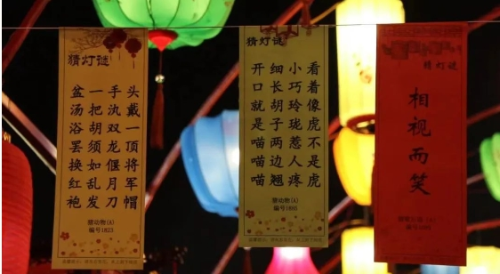 猜灯谜
头戴一顶将军帽
手执双龙偃月刀
一把胡须如乱发
盆汤浴罢换红袍
猜动物(4)
猜灯谜
看着像虎不是虎
小巧玲珑惹人疼
细长胡子两边翘
开口就是喵喵喵
猜动物(4)
猜灯谜
相视而笑